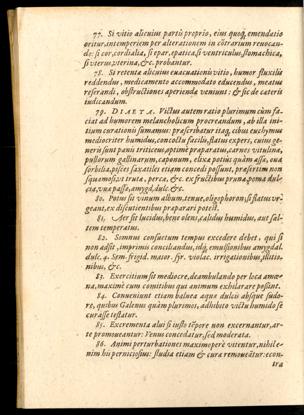 77. Si vitio alicuius partis proprio, eius quoq; emendatio
oritur, intemperiem per alterationem in cōtrarium reuocan-
do: si cor, cordialia, si epar, epatica, si ventriculus, stomachica,
si vterus, vterina, &c. probantur.
78. Si retenta alicuius euacuationi vitio, humor fluxilis
reddendus, medicamento accommodato educendus, meatus
referandi, obstructiones aperiendæ veniunt: & sic de cæteris
iudicandum.
79. DIAETA. Victus autem ratio plurimum cùm fa-
ciat ad humorem melancholicum procreandum, ab illa ini-
tium curationis sumamus: præscribatur itaq; cibus euchymus
mediocriter humidus, concoctu facilis, flatus expers, cuius ge-
neris sunt panis triticeus, optimè præparatus, carnes vitulinæ,
pullorum gallinarum, caponum, elixæ potiùs quàm assæ, oua
sorbilia, pisces saxatiles etiam concedi possunt, præsertim non
squamosi, vt truta, percæ, &c. ex fructibus pruna, poma dul-
cia, vua passæ, amygd. dulc. &c.
80. Potus sit vinum album, tenue, oligophoron, si flatus vr-
geant, ex discutientibus præparari potest.
81. Aer sit lucidus, bene olens, calidus humidus, aut sal-
tem temperatus.
82. Somnus consuetum tempus excedere debet, qui si
non adsit, imprimis conciliandus, idq; emulsionibus amygdal.
dulc. 4. Sem. frigid. maior. syr. violac. irrigationibus, illitio-
nibus, &c.
83. Exercitium sit mediocre, deambulando per loca amœ-
na, maximè cum comitibus qui animum exhilarare possint.
84. Conueniunt etiam balnea aquæ dulcis absque sudo-
re, quibus Galenus quàm plurimos, adhibito victu humido se
curasse testatur.
85. Excrementa alui si iusto tēpore non excernantur, ar-
te promoueantur: Venus concedatur, sed moderata.
86. Animi perturbationes maximoperè vitentur, nihil e-
nim his perniciosius: studia etiam & cura remoueātur: econ-
tra